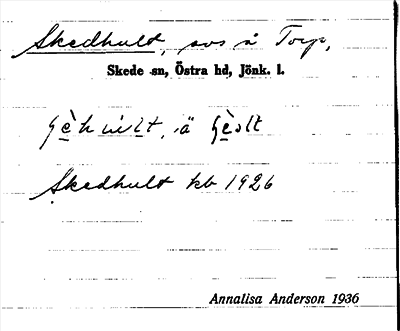 Skedhult, avs å Torp,
Skede sn, Östra hd, Jönk. l.
Skedhult kb 1926
Annalisa Anderson 1936